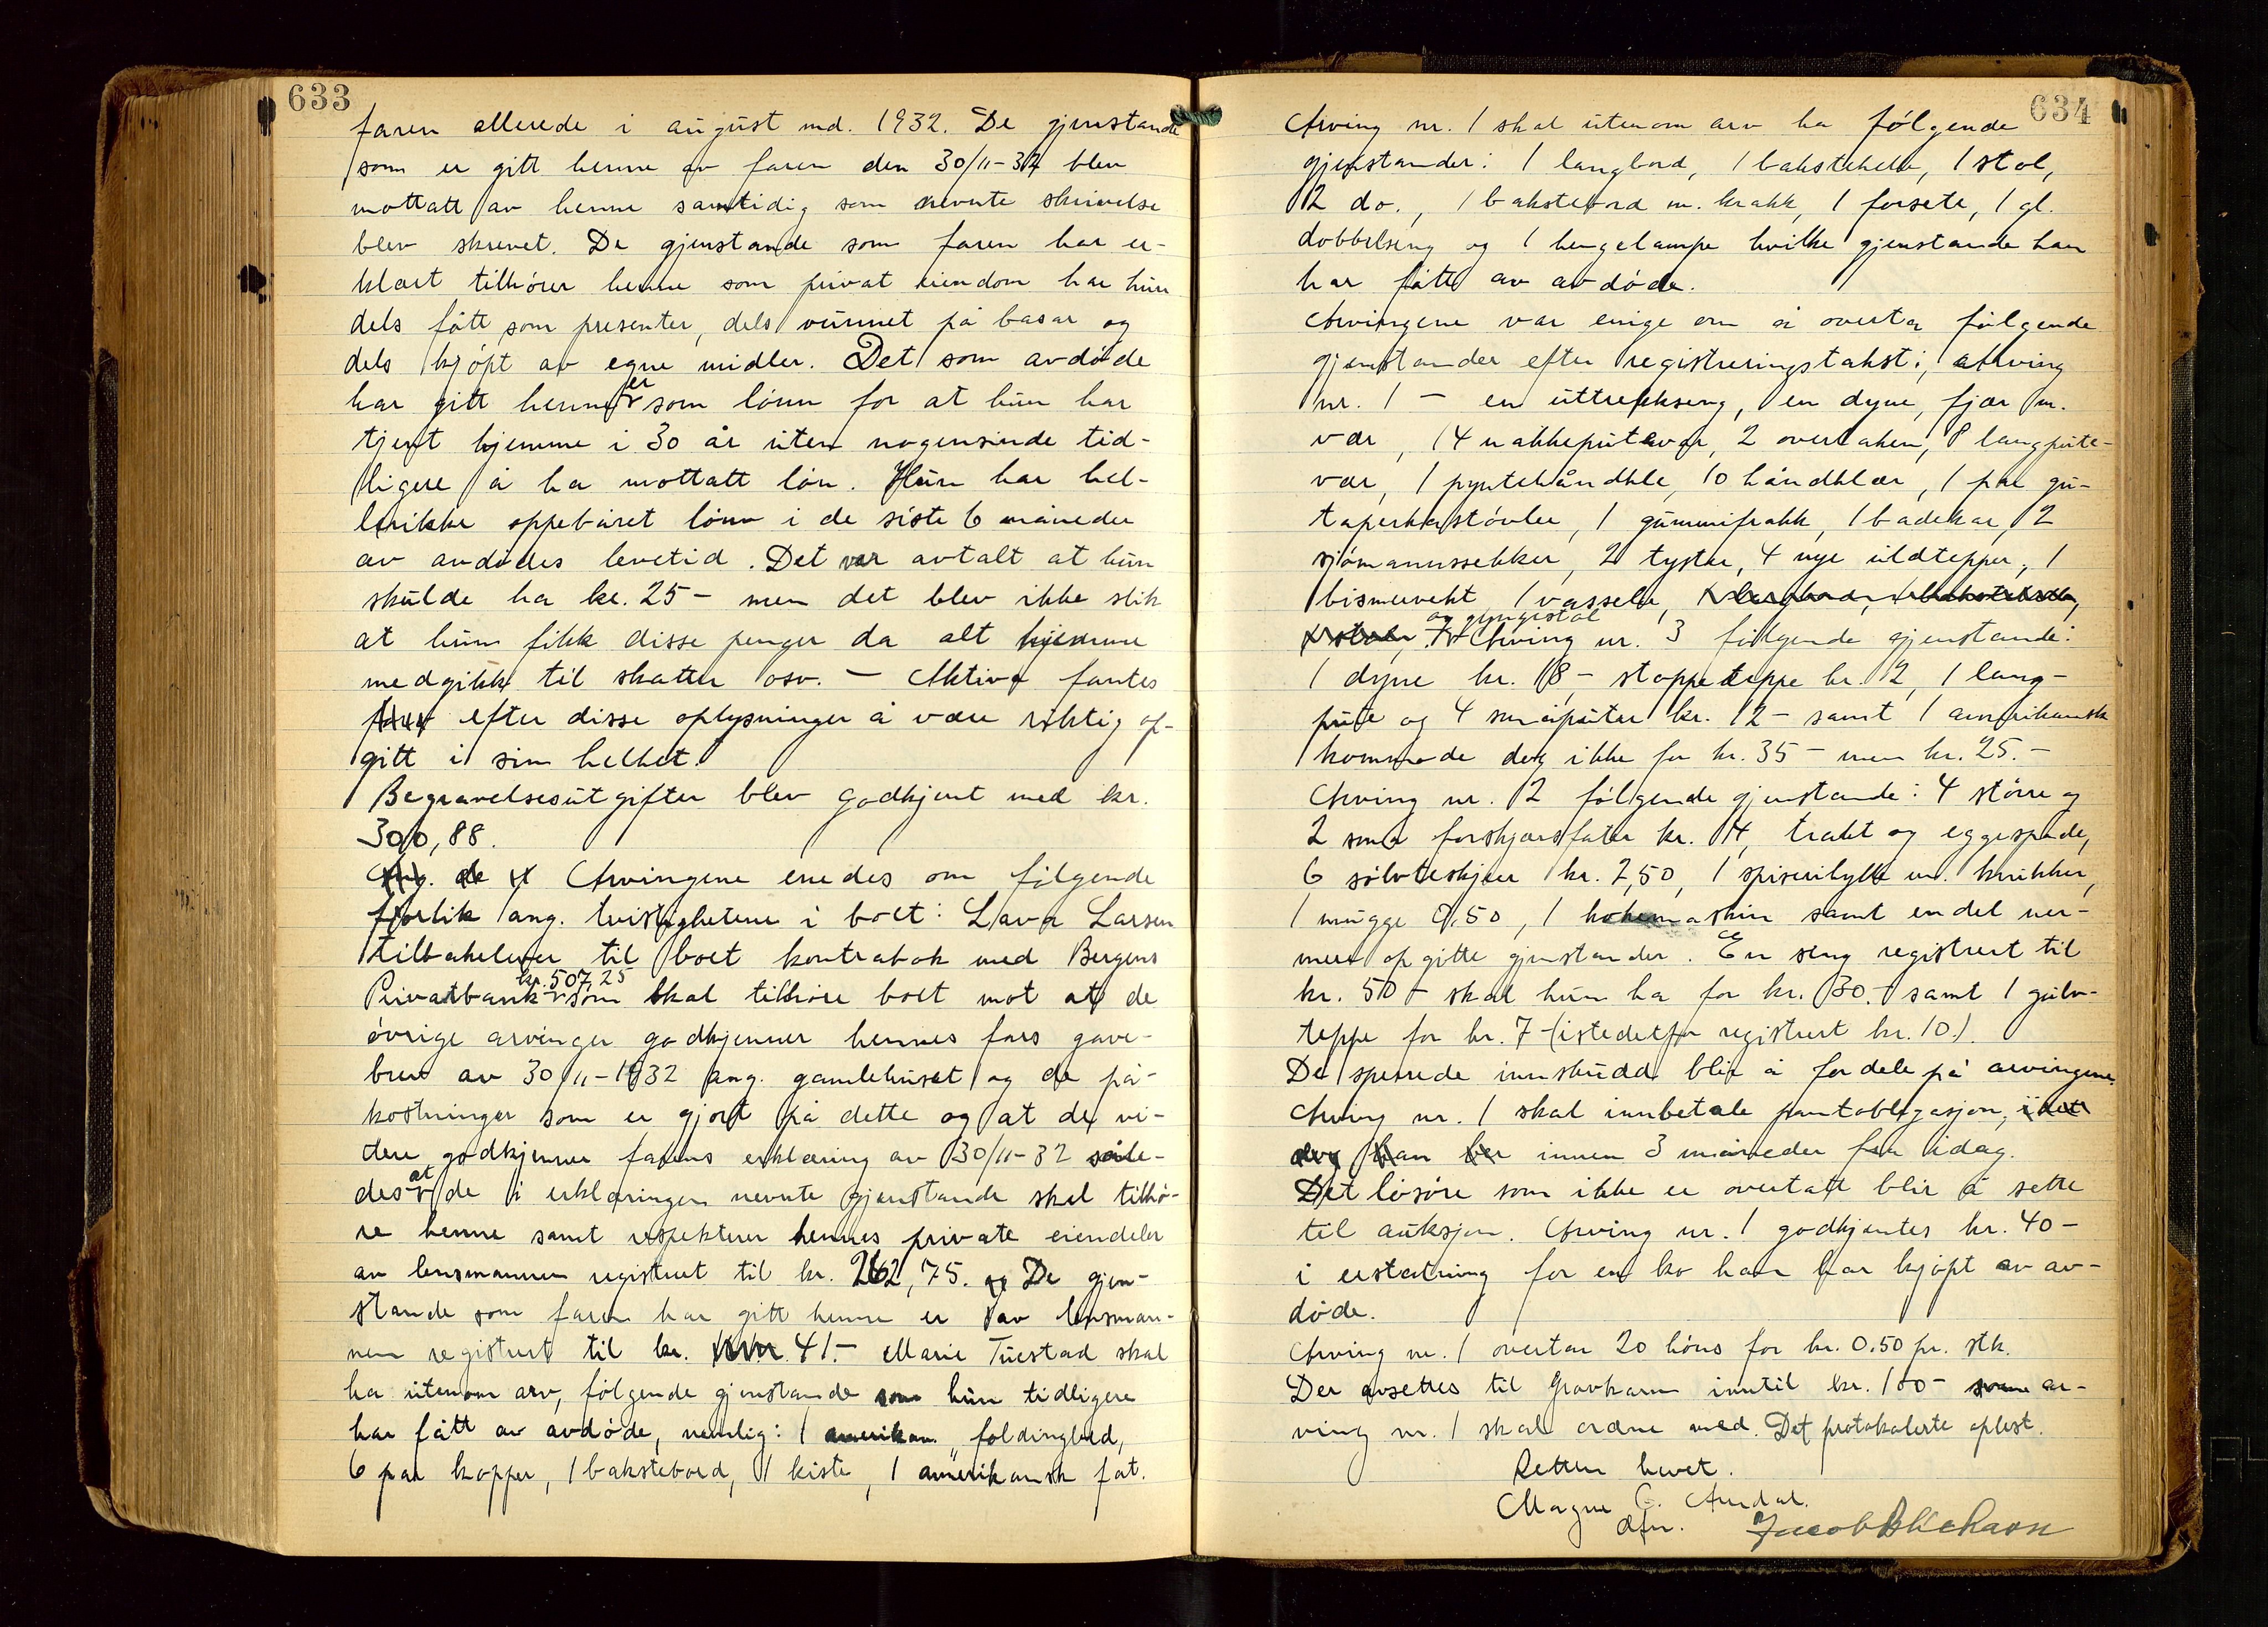 633
faren allerede i august md. 1932. De gjenstande
som er gitt henne av faren den 30/11-32 blev
mottatt av henne samtidig som nevnte skrivelse
blev skrevet. De gjenstande som faren har er-
klært tilhører henne som privat eiendom har hun
dels fått som presenter, dels vunnet på basar og
dels kjøpt av egne midler. Det som avdøde
har gitt henne er som lønn for at hun har
tjent hjemme i 30 år uten nogensinde tid-
ligere å ha mottatt løn. Hun har hel-
ler ikke oppebåret lønn i de siste 6 måneder
av avdødes levetid. Det var avtalt at hun
skulde ha kr. 25 - men det blev ikke slik
at hun fikk disse penger da alt hjemme
medgikk til skatter osv. - Aktiva fantes
efter disse oplysninger å være riktig op-
gitt i sin helhet.
Begravelsesutgifter blev godkjent med kr.
300,88.
Arvingene enedes om følgende
forlik ang. tvistighetene i boet: Lava Larsen
tilbakeleverer til boet kontrabok med Bergens
Privatbank kr. 507,25 som skal tilhøre boet mot at de
øvrige arvinger godkjenner hennes fars gave-
brev av 30/11-1932 ang. gamlehuset og de på-
kostninger som er gjort på dette og at de vi-
dere godkjenner farens erklæring av 30/11-32 såle-
des at de i erklæringen nevnte gjenstande skal tilhø-
re henne samt respekterer hennes private eiendeler
av lensmannen registrert til kr. 262,75. De gjen-
stande som faren har gitt henne er av lensman-
nen registrert til kr. 41.- Marie Tuestad skal
ha utenom arv, følgende gjenstande som hun tidligere
har fått av avdøde, nemlig: 1 amerikan. foldingbed,
6 par kopper, 1 bakstebord, 1 kiste, 1 amerikansk fat.
634
Arving nr. 1 skal utenom arv ha følgende
gjenstander: 1 langbord, 1 bakstehelle, 1 stol,
2 do., 1 bakstebord m. krakk, 1 forsete, 1 gl.
dobbelseng og 1 hengelampe hvilke gjenstande han
har fått av avdøde.
Arvingene var enige om å overta følgende
gjenstander efter registreringstakst: arving
nr. 1 - en uttrekkseng, en dyne, fjær m.
vær, 4 nakkeputevar, 2 overlaken, 8 langpute-
vær, 1 pyntehåndkle, 10 håndklær, 1 par gu-
taperkastøvler, 1 gummifrakk, 1 badekar, 2
sjømannssekker, 2 tyster, 4 nye uldtepper, 1
bismervekt 1 vassele,
og gyngestol
Arving nr. 3 følgende gjenstande:
1 dyne kr. 8 - stoppeteppe kr. 2, 1 lang-
pute og 4 småputer kr. 12 - samt 1 amerikansk
kommode dog ikke for kr. 35 - men kr. 25.-
Arving nr. 2 følgende gjenstande: 4 større og
2 små forskjærsfater kr. 4, trakt og eggespade,
6 sølvteskjeer kr. 2,50, 1 spiserihylle m. krukker,
1 mugge 0,50, 1 kokemaskin samt endel ner-
mere opgitte gjenstander. En seng registrert til
kr. 50 - skal hun ha for kr. 30.- samt 1 gulv-
teppe for kr. 7 - (istedetfor registrert kr. 10.)
De sperrede innskudd blir å fordele på arvingene.
Arving nr. 1 skal innbetale pantobligasjon,
innen 3 måneder fra idag.
Det løsøre som ikke er overtatt blir å sette
til auksjon. Arving nr. 1 godkjentes kr. 40 -
i erstatning for en ko han har kjøpt av av-
døde.
Arving nr. 1 overtar 20 høns for kr. 0.50 pr. stk.
Der avsettes til gravkarm inntil kr. 100 - som ar-
ving nr. 1 skal ordne med. Det protokolerte oplest.
Retten hevet.
Magne C. Aurdal.
dfm. Jacob Blickasen